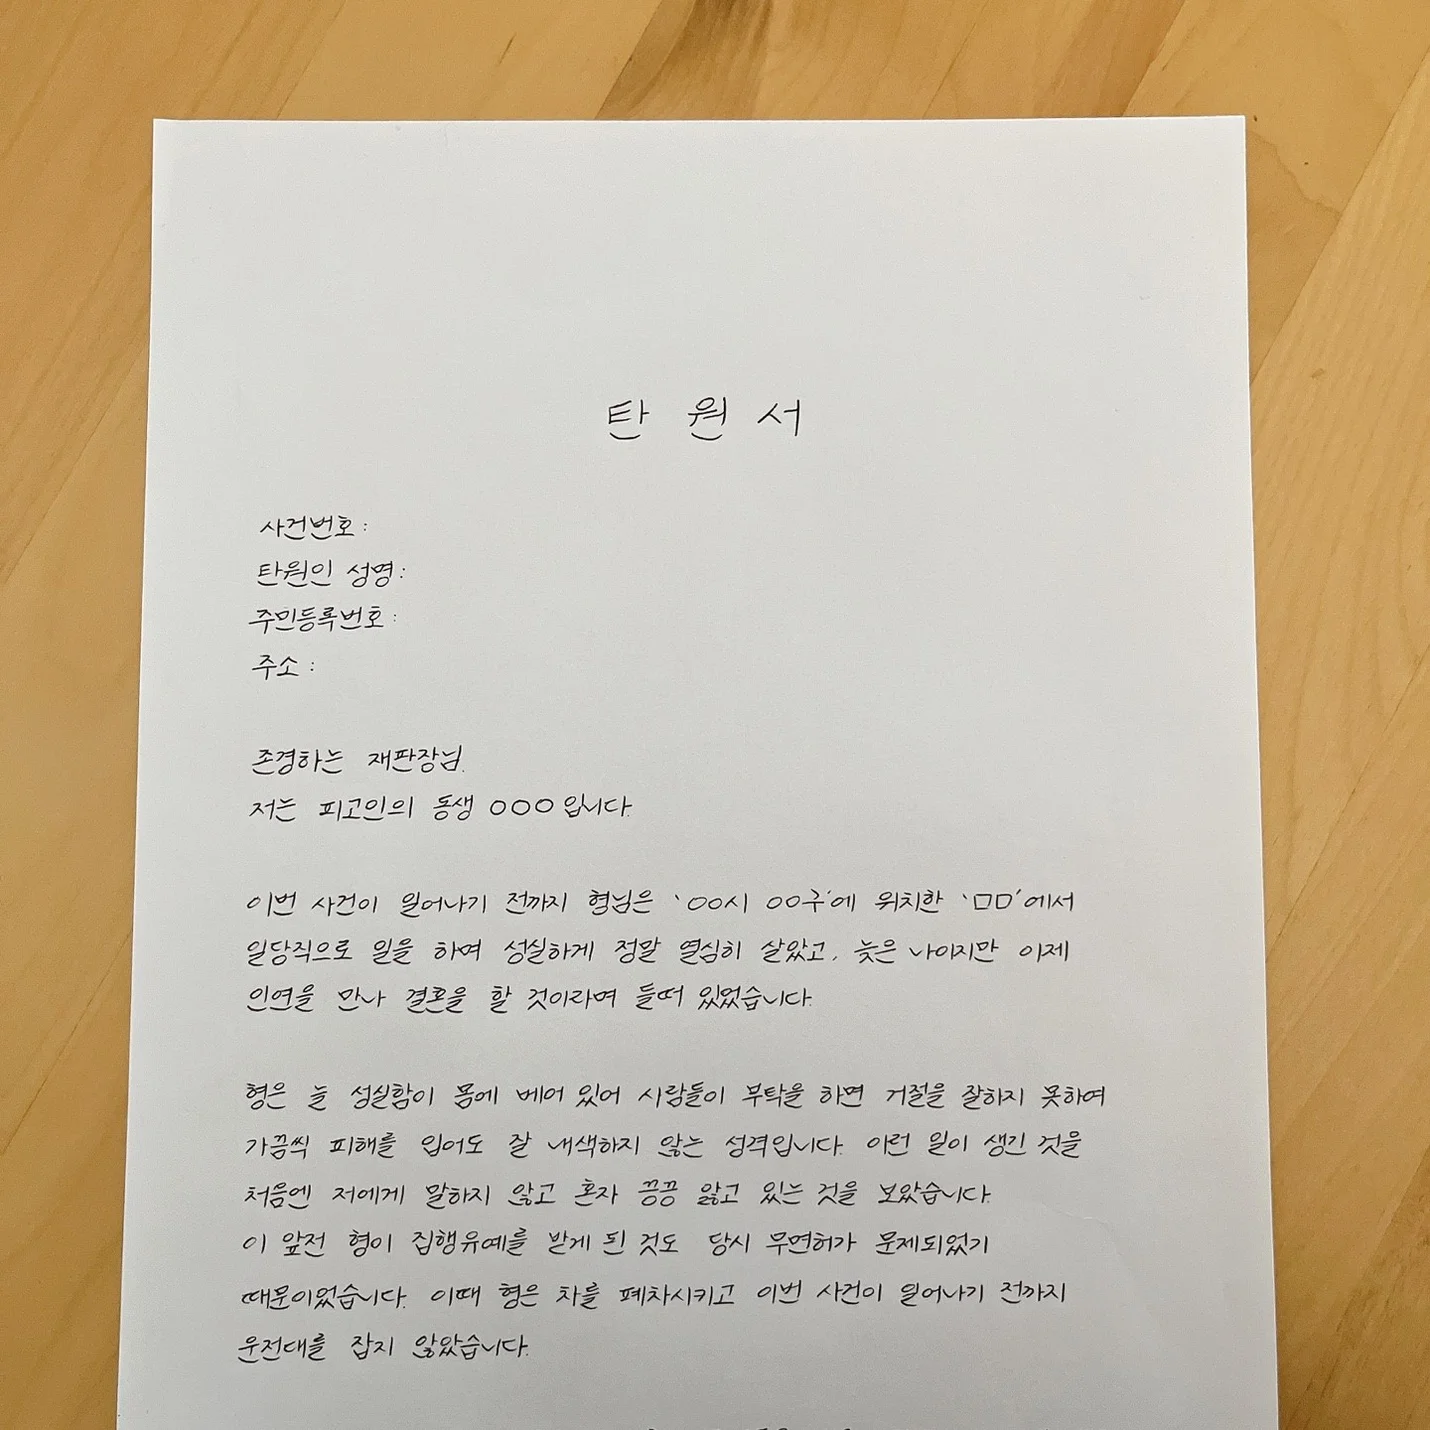 탄 원 서
사건번호:
탄원인 성명:
주민등록번호:
주소:
존경하는 재판장님.
저는 피고인의 동생 ○○○입니다.
이번 사건이 일어나기 전까지 형님은 '○○시 ○○구'에 위치한 '□□'에서
일당직으로 일을 하며 성실하게 정말 열심히 살았고, 늦은 나이지만 이제
인연을 만나 결혼을 할 것이라며 들떠 있었습니다.
형은 늘 성실함이 몸에 베어 있어 사람들이 부탁을 하면 거절을 잘하지 못하여
가끔씩 피해를 입어도 잘 내색하지 않는 성격입니다. 이런 일이 생긴 것을
처음엔 저에게 말하지 않고 혼자 끙끙 앓고 있는 것을 보았습니다.
이 앞전 형이 집행유예를 받게 된 것도 당시 무면허가 문제되었기
때문이었습니다. 이때 형은 차를 폐차시키고 이번 사건이 일어나기 전까지
운전대를 잡지 않았습니다.